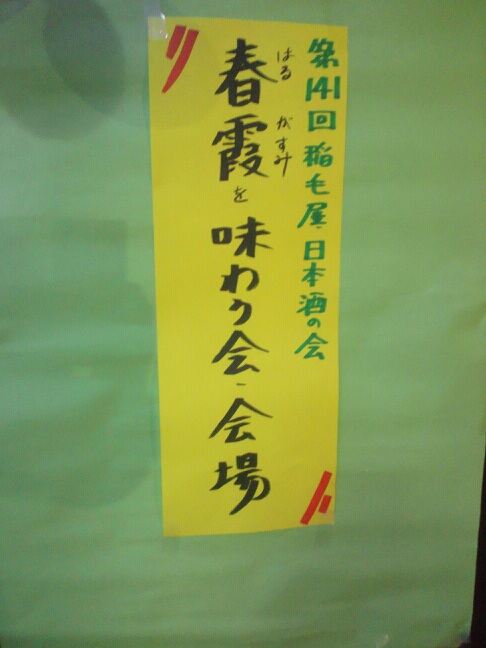 第141回稲毛屋・日本酒の会
春霞を味わう会・会場
はる がすみ